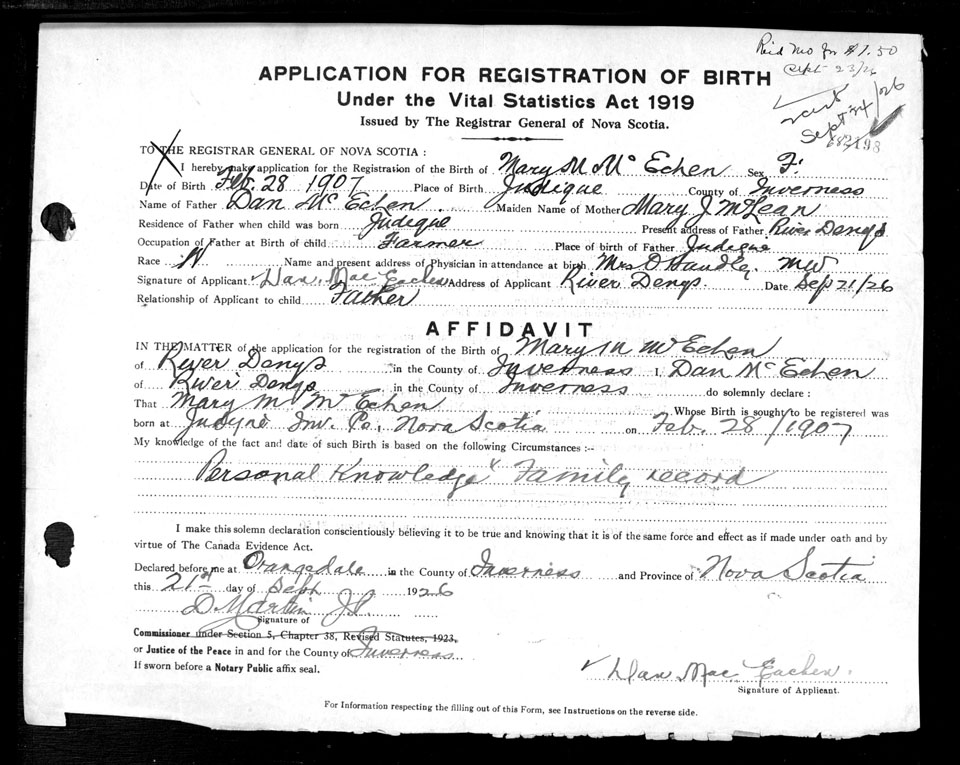 Rec'd Mo for $1.50
Sept 23/26
Sept 24/26
682198
APPLICATION FOR REGISTRATION OF BIRTH
Under the Vital Statistics Act 1919
Issued by The Registrar General of Nova Scotia.
TO THE REGISTRAR GENERAL OF NOVA SCOTIA :
I hereby make application for the Registration of the Birth of Mary M McEchen Sex F.
Date of Birth Feb. 28 1907 Place of Birth Judique County of Inverness
Name of Father Dan McEchen Maiden Name of Mother Mary J McLean
Residence of Father when child was born Judique Present address of Father River Denys
Occupation of Father at Birth of child Farmer Place of birth of Father Judique
Race W Name and present address of Physician in attendance at birth Mrs D Handley. MW
Signature of Applicant Dan. Mac Eachen Address of Applicant River Denys. Date Sep 21/26
Relationship of Applicant to child Father
AFFIDAVIT
IN THE MATTER of the application for the registration of the Birth of Mary M McEchen
of River Denys in the County of Inverness I, Dan McEchen
of River Denys in the County of Inverness do solemnly declare :
That Mary M McEchen Whose Birth is sought to be registered was
born at Inv. Co. Nova Scotia on Feb. 28/1907
My knowledge of the fact and date of such Birth is based on the following Circumstances :--
Personal Knowledge & Family record
I make this solemn declaration conscientiously believing it to be true and knowing that it is of the same force and effect as if made under oath and by
virtue of The Canada Evidence Act.
Declared before me at Orangedale in the County of Inverness and Province of Nova Scotia
this 21st day of Sept 1926
D. Martin J.P.
Signature of
Commissioner under Section 5, Chapter 38, Revised Statutes, 1923,
or Justice of the Peace in and for the County of Inverness
If sworn before a Notary Public affix seal.
Dan. Mac Eachen.
Signature of Applicant.
For Information respecting the filling out of this Form, see Instructions on the reverse side.